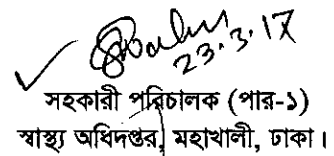 23.3.17
সহকারী পরিচালক (পার-১)
স্বাস্থ্য অধিদপ্তর, মহাখালী, ঢাকা।